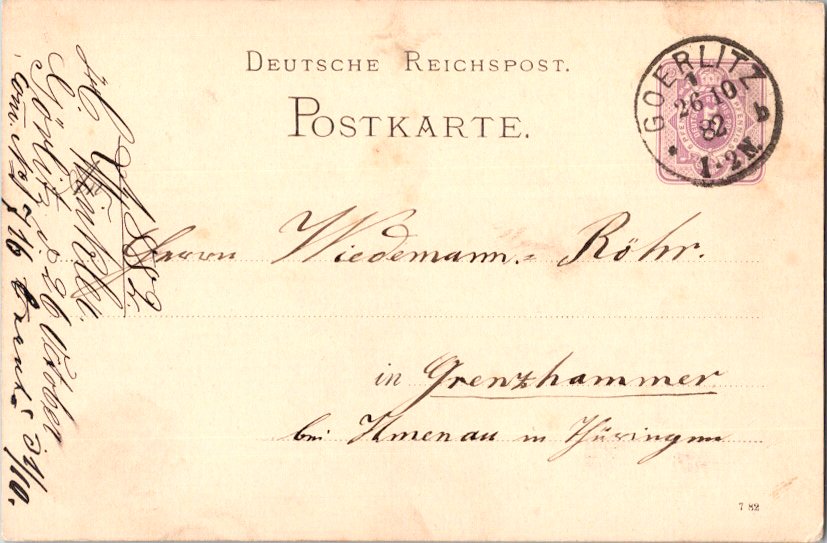 DEUTSCHE REICHSPOST.
POSTKARTE.
GOERLITZ
26 10
82
1-2 N.
b
Herrn Wiedemann-Röhr.
in Grenzhammer
bei Ilmenau in Thüringen
7 82
Görlitz d. 26 October
1882.
31/10.